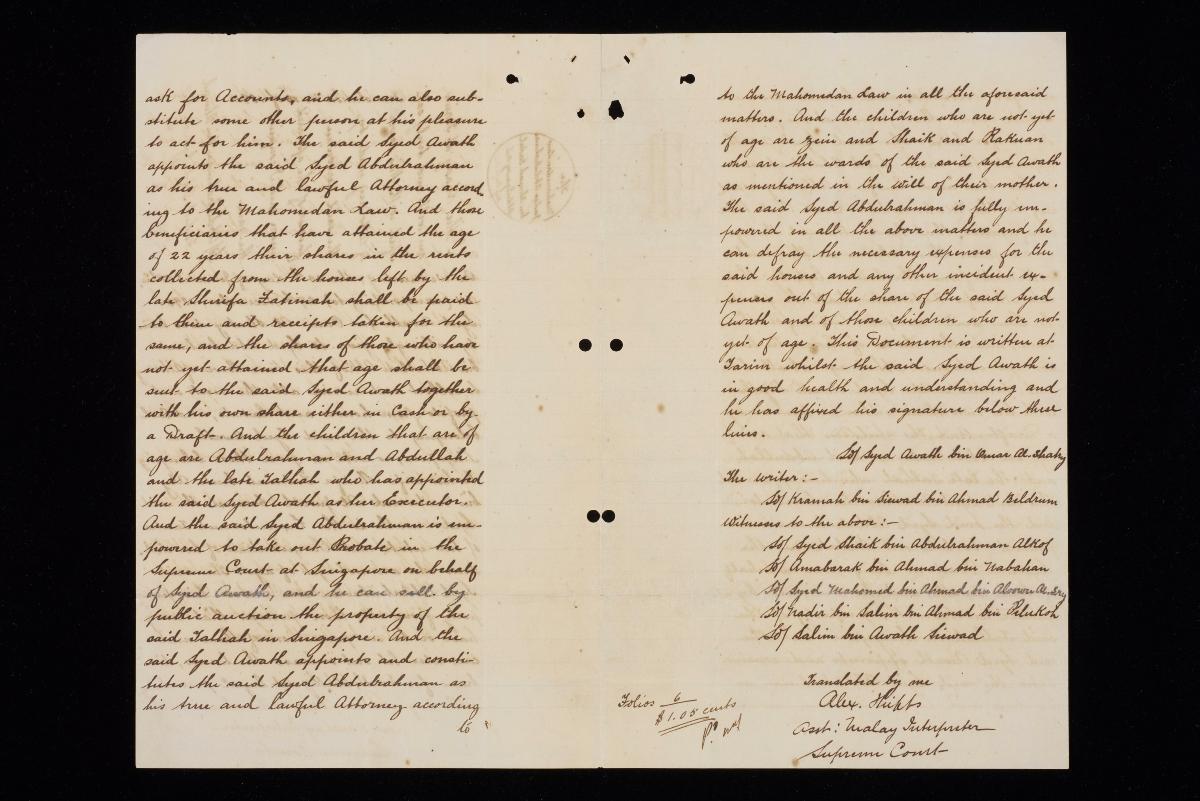 ask for Accounts, and he can also sub-
stitute some other person at his pleasure
to act for him. The said Syed Awath
appoints the said Syed Abdulrahman
as his true and lawful Attorney accord
ing to the Mahomedan Law. And those
beneficiaries that have attained the age
of 22 years their shares in the rents
collected from the houses left by the
late Sherifa Fatimah shall be paid
to them and receipts taken for the
same, and the shares of those who have
not yet attained that age shall be
sent to the said Syed Awath together
with his own share either in Cash or by
a Draft. And the children that are of
age are Abdulrahman and Abdullah
and the late Talhah who has appointed
the said Syed Awath as her Executor.
And the said Syed Abdulrahman is em-
powered to take out Probate in the
Supreme Court at Singapore on behalf
of Syed Awath, and he can sell by
public auction the property of the
said Talhah in Singapore. And the
said Syed Awath appoints and consti-
tutes the said Syed Abdulrahman as
his true and lawful Attorney according
to
to the Mahomedan Law in all the aforesaid
matters. And the children who are not yet
of age are Zein and Shaik and Rakuan
who are the wards of the said Syed Awath
as mentioned in the will of their mother.
The said Syed Abdulrahman is fully em-
powered in all the above matters and he
can defray the necessary expenses for the
said houses and any other incident ex-
penses out of the share of the said Syed
Awath and of those children who are not
yet of age. This Document is written at
Tarim whilst the said Syed Awath is
in good health and understanding and
he has affixed his signature below these
lines.
Sd/ Syed Awath bin Omar Al-Shatry
The writer:-
Sd/ Kramah bin Siewad bin Ahmad Beldrum
Witnesses to the above:-
Sd/ Syed Shaik bin Abdulrahman Alkof
Sd/ Amabarak bin Ahmad bin Nabahan
Sd/ Syed Mahomed bin Ahmad bin
Sd/ Nadir bin Salim bin Ahmad bin Pelukoh
Sd/ Salim bin Awath Siewad
Translated by me
Alex.
Asst: Malay Interpreter
Supreme Court
Folios 6
$1.05 cents